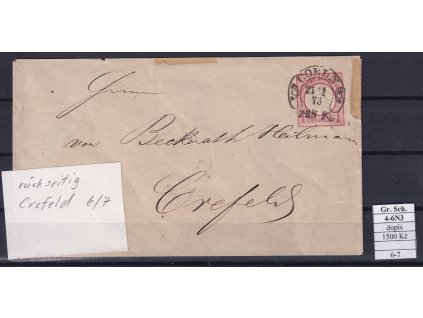 COELN
21 12
73
Herrn
von Beckerath Heilmann
Crefeld
rückseitig
Crefeld 6/7
Gr. Sch.
4-6N3
dopis
1500 Kč
6-7